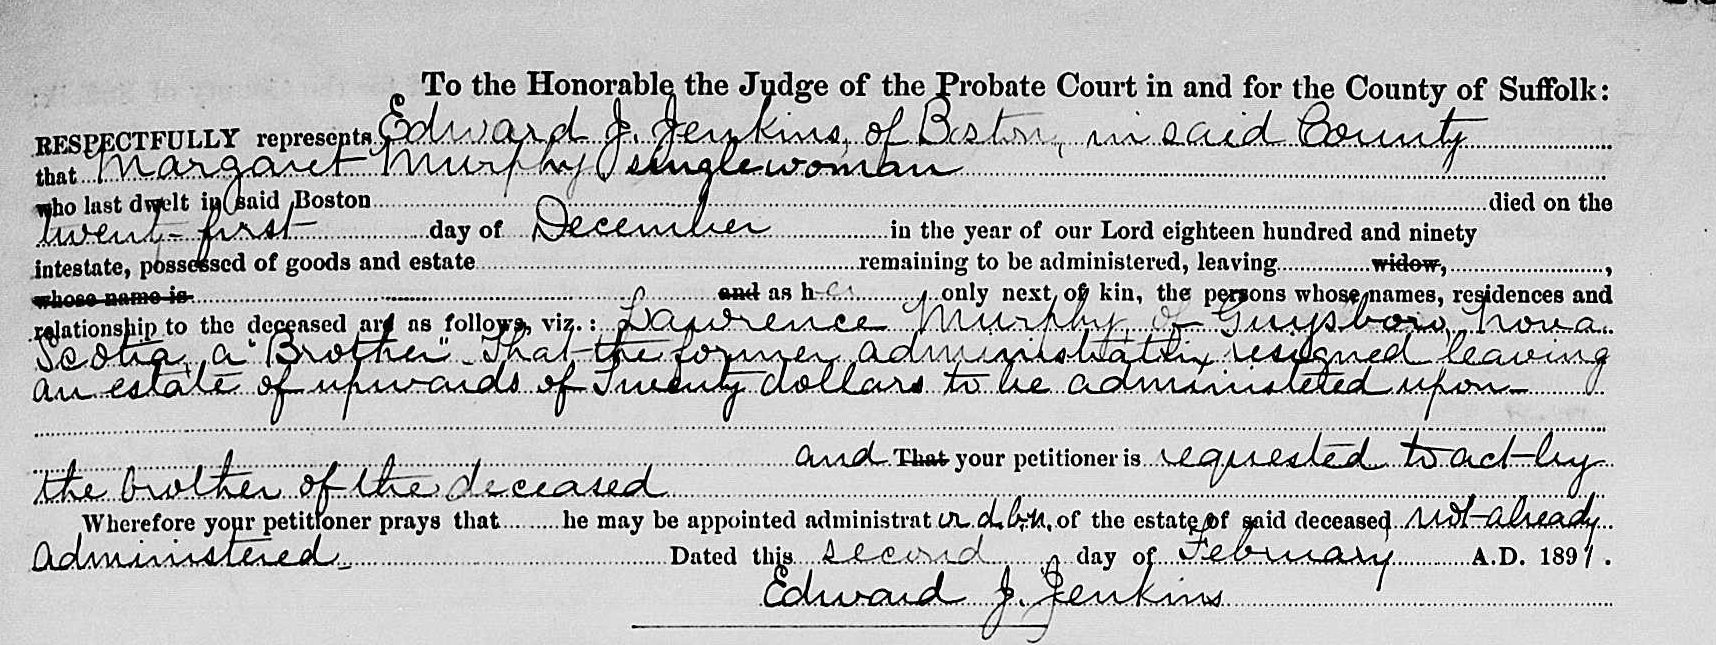 To the Honorable the Judge of the Probate Court in and for the County of Suffolk:
RESPECTFULLY represents Edward J. Jenkins, of Boston, in said County
that Margaret Murphy, singlewoman
who last dwelt in said Boston died on the
twent-first day of December in the year of our Lord eighteen hundred and ninety
intestate, possessed of goods and estate remaining to be administered, leaving widow,,
whose name is and as her only next of kin, the persons whose names, residences and
relationship to the deceased are as follows, viz.: Lawrence Murphy, of Guysboro, Nova
Scotia, a "Brother" That the former administratrix resigned leaving
an estate of upwards of Twenty dollars to be administered upon-
and That your petitioner is requested to act by
the brother of the deceased
Wherefore your petitioner prays that he may be appointed administrator d.b.n. of the estate of said deceased not already
administered Dated this second day of February A.D. 1891.
Edward J. Jenkins